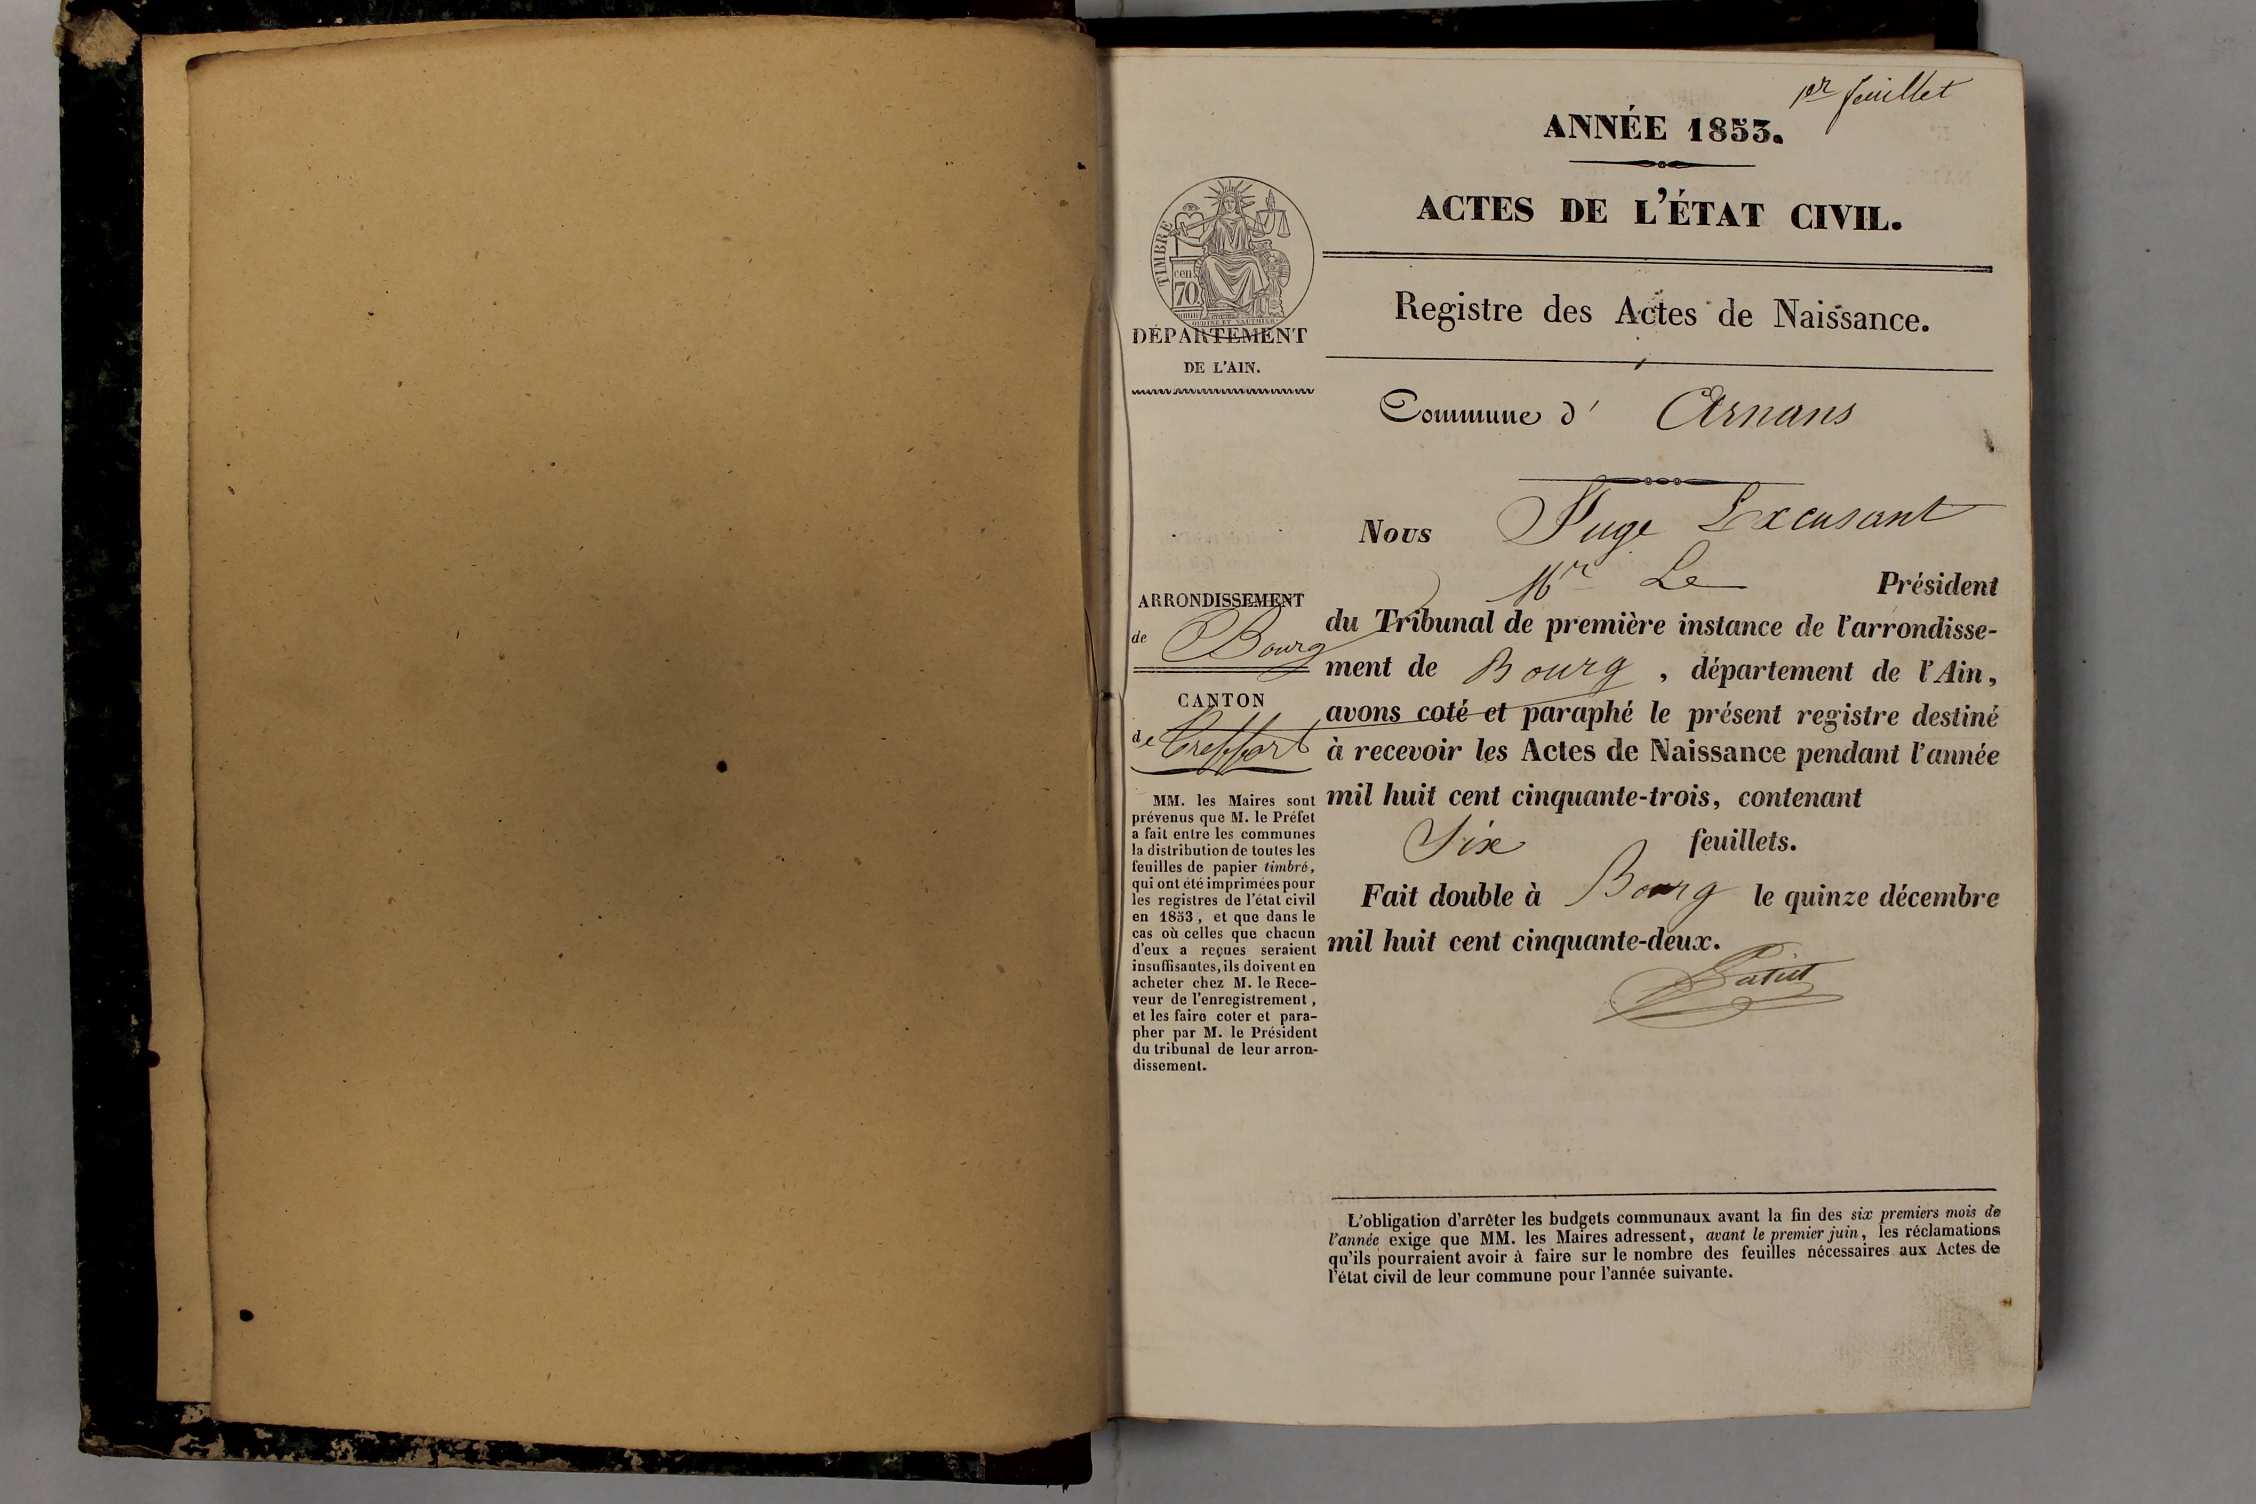 1er feuillet
ANNÉE 1853.
ACTES DE L'ÉTAT CIVIL.
TIMBRE
cen
70
DÉPARTEMENT
DE L'AIN.
Registre des Actes de Naissance.
Commune d' Arnans
Nous Juge Excusant
Mr Le Président
du Tribunal de première instance de l'arrondisse-
ment de Bourg, département de l'Ain,
avons coté et paraphé le présent registre destiné
à recevoir les Actes de Naissance pendant l'année
mil huit cent cinquante-trois, contenant
Six feuillets.
Fait double à Bourg le quinze décembre
mil huit cent cinquante-deux.
ARRONDISSEMENT
de Bourg
CANTON
de Treffort
MM. les Maires sont
prévenus que M. le Préfet
a fait entre les communes
la distribution de toutes les
feuilles de papier timbré,
qui ont été imprimées pour
les registres de l'état civil
en 1853, et que dans le
cas où celles que chacun
d'eux a reçues seraient
insuffisantes, ils doivent en
acheter chez M. le Rece-
veur de l'enregistrement,
et les faire coter et para-
pher par M. le Président
du tribunal de leur arron-
dissement.
L'obligation d'arrêter les budgets communaux avant la fin des six premiers mois de
l'année exige que MM. les Maires adressent, avant le premier juin, les réclamations
qu'ils pourraient avoir à faire sur le nombre des feuilles nécessaires aux Actes de
l'état civil de leur commune pour l'année suivante.